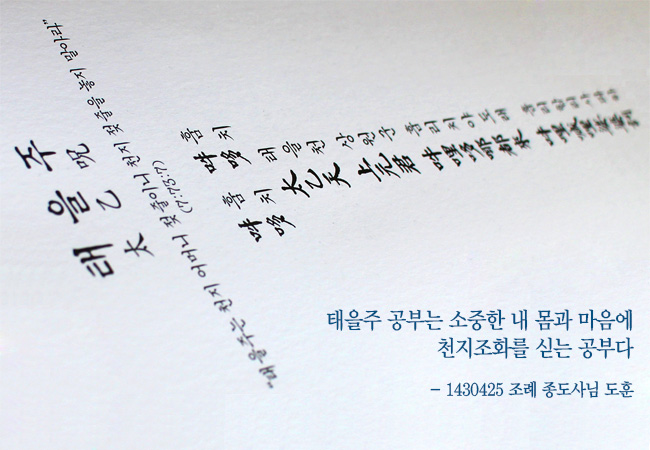 태을주
太乙呪
"태을주는 천지 어머니 젖줄이니 천지 젖줄을 놓지 말아라"
(7:75:7)
훔치
吽哆
훔치
吽哆
태을천 상원군 훔리치야도래
太乙天 上元君 吽哩哆㖿都來
태을주 공부는 소중한 내 몸과 마음에
천지조화를 싣는 공부다
– 1430425 조례 종도사님 도훈